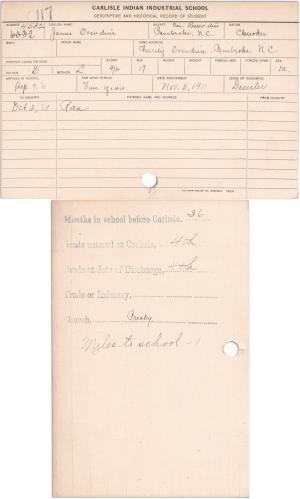 117
CARLISLE INDIAN INDUSTRIAL SCHOOL
DESCRIPTIVE AND HISTORICAL RECORD OF STUDENT
NUMBER ENGLISH NAME AGENCY NATION
James Oxendine Pembroke, N.C. Cherokee
BAND INDIAN NAME HOME ADDRESS
Oxendine, Pembroke N.C.
PARENTS LIVING OR DEAD BLOOD AGE HEIGHT WEIGHT FORCED INSP. FORCED EXPR. SEX
FATHER D MOTHER L 17 M.
ARRIVED AT SCHOOL FOR WHAT PERIOD DATE DISCHARGED CAUSE OF DISCHARGE
Sep. 9, 11 Five years Nov. 2, 1911 Deserter
TO COUNTRY PATRONS NAME AND ADDRESS FROM COUNTRY
Oct 2, 11 Ran
Months in school before Carlisle, 36
Grade entered at Carlisle, 4th
Grade at date of Discharge, 4th
Trade or Industry,
Church, Presby
Miles to school - 1